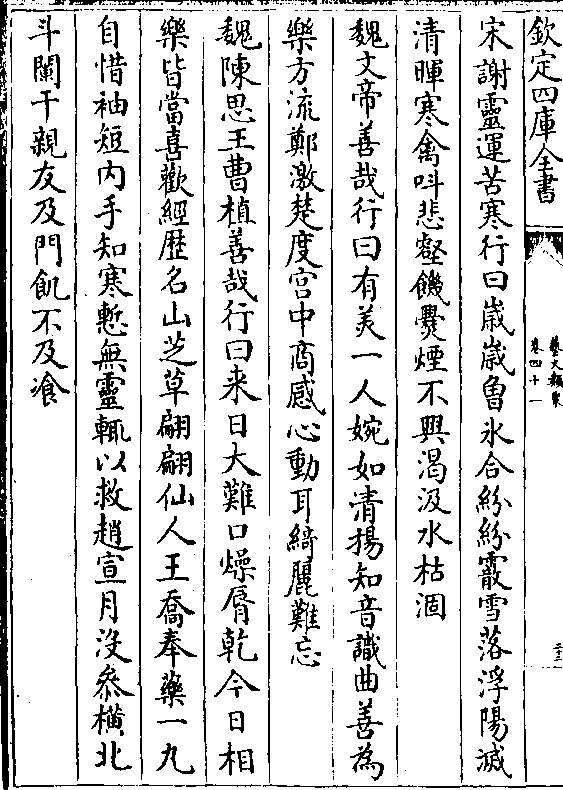 欽定四庫全書
藝文類聚
卷四十一
二十三
宋謝靈運苦寒行曰歲歲魯氷合紛紛霰雪落浮陽滅
清暉寒禽呌悲壑饑㸑煙不興渴汲水枯涸
魏文帝善哉行曰有美一人婉如清揚知音識曲善為
樂方流鄭激楚度宫中商感心動耳綺麗難忘
魏陳思王曹植善哉行曰来日大難口燥脣乾今日相
樂皆當喜歡經歴名山芝草翩翩仙人王喬奉藥一丸
自惜袖短内手知寒慙無靈輒以救趙宣月沒叅横北
斗闌干親友及門飢不及飡